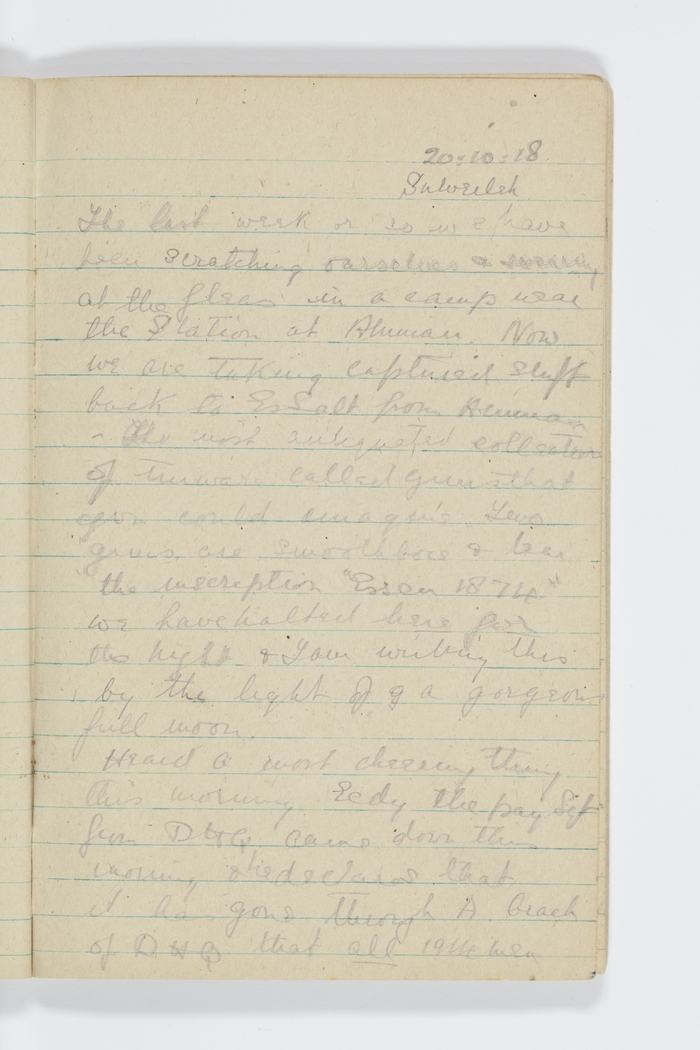 20-10-18
Sulweileh
The last week or so we have
been scratching ourselves & swearing
at the fleas in a camp near
the Station at Amman. Now
we are taking captured stuff
back to EsSalt from Amman
- The most antiquated collection
of tinware called guns that
you could imagine. Two
guns are smoothbore & bear
the inscription "Essen 1874"
we have halted here for
the night & I am writing this
by the light of a gorgeous
full moon.
Heard a most cheering thing
this morning Eedy the pay Sgt
from DHQ came down this
morning & he declares that
it has gone through A. Branch
of DHQ that all 1914 men